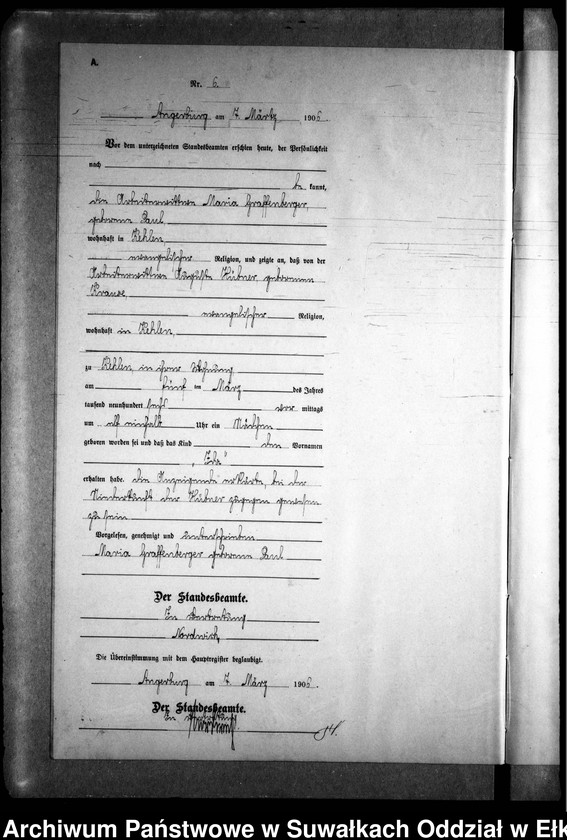 A.
Nr. 6.
Angerburg am 7. März 1906
Vor dem unterzeichneten Standesbeamten erschien heute, der Persönlichkeit
nach
be kannt,
die Arbeiterwittwe Maria Graffenberger,
geborene Paul
wohnhaft in Kehlen
evangelischer Religion, und zeigte an, daß von der
Arbeiterwittwe Auguste Hübner geborenen
Krause,
evangelischer Religion,
wohnhaft in Kehlen,
zu Kehlen, in ihrer Wohnung
am fünf ten März des Jahres
tausend neunhundert sechs vor mittags
um elf einhalb Uhr ein Mädchen
geboren worden sei und daß das Kind den Vornamen
„Ida“
erhalten habe. Die Anzeigende erklärte, bei der
Niederkunft der Hübner zugegen gewesen
zu sein
Vorgelesen, genehmigt und unterschrieben
Maria Graffenberger geborene Paul
Der Standesbeamte.
In Vertretung
Nordwich
Die Übereinstimmung mit dem Hauptregister beglaubigt.
Angerburg am 7. März 1906.
Der Standesbeamte.
In Vertretung
Archiwum Państwowe w Suwałkach Oddział w Ełk